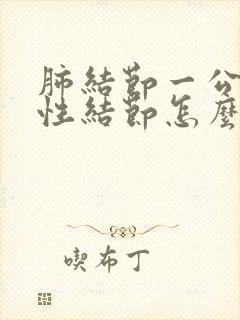 肺結節一公
性結節怎麼
喫布丁